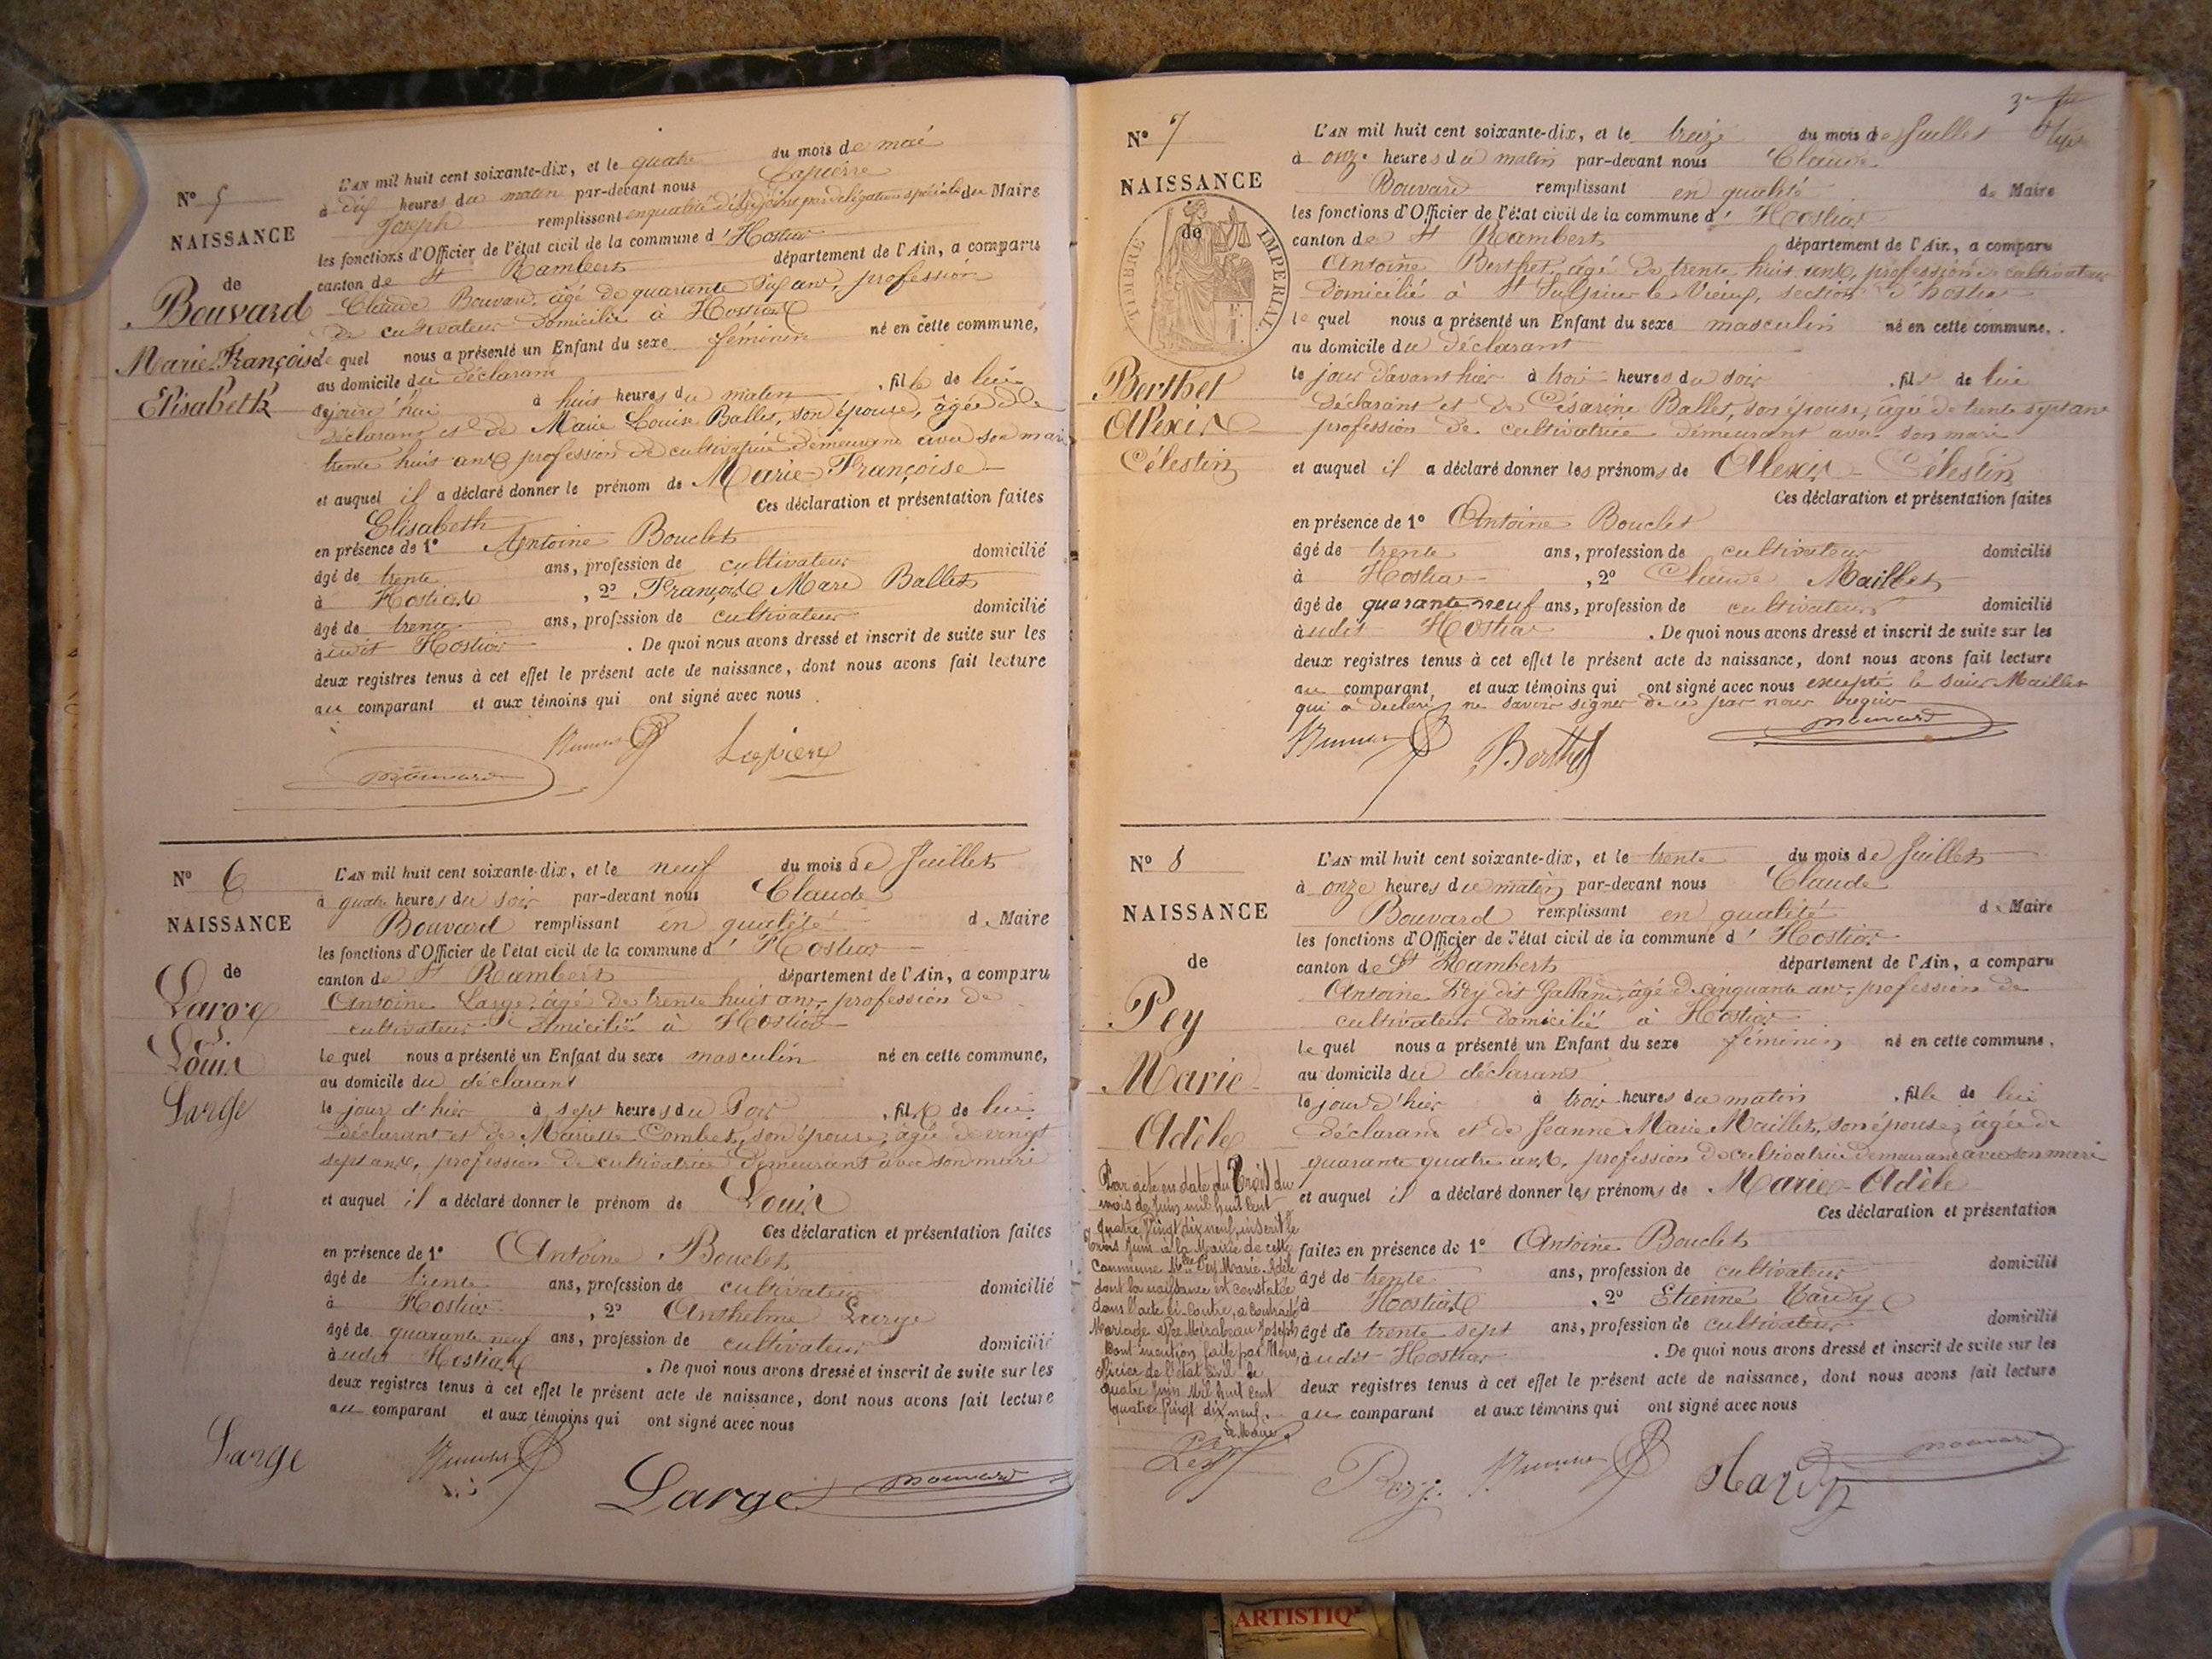 N° 5
NAISSANCE
de
Bouvard
Marie Françoise
Elisabeth
L'AN mil huit cent soixante-dix, et le quatre du mois de mai
à dix heures du matin par-devant nous Lapierre
Joseph remplissant en qualité d'adjoint par délégation spéciale du Maire
les fonctions d'Officier de l'état civil de la commune d'Hostiaz
canton de St Rambert département de l'Ain, a comparu
Claude Bouvard, âgé de quarante six ans, profession
de cultivateur domicilié à Hostiaz
le quel nous a présenté un Enfant du sexe féminin né en cette commune,
au domicile du déclarant
aujourd'hui à huit heures du matin, fille de lui
déclarant et de Marie Louise Ballet, son épouse, âgée de
trente huit ans profession de cultivatrice demeurant avec son mari
et auquel il a déclaré donner le prénom de Marie-Françoise
Elisabeth Ces déclaration et présentation faites
en présence de 1° Antoine Bouclet
âgé de trente ans, profession de cultivateur domicilié
à Hostiaz, 2° François Marie Ballet
âgé de trente ans, profession de cultivateur domicilié
audit Hostiaz. De quoi nous avons dressé et inscrit de suite sur les
deux registres tenus à cet effet le présent acte de naissance, dont nous avons fait lecture
au comparant et aux témoins qui ont signé avec nous
Lapierre
Bouvard
N° 6
NAISSANCE
de
Large
Louis
Large
L'AN mil huit cent soixante-dix, et le neuf du mois de Juillet
à quatre heures du soir par-devant nous Claude
Bouvard remplissant en qualité de Maire
les fonctions d'Officier de l'état civil de la commune d'Hostiaz
canton de St Rambert département de l'Ain, a comparu
Antoine Large, âgé de trente huit ans, profession de
cultivateur domicilié à Hostiaz
le quel nous a présenté un Enfant du sexe masculin né en cette commune,
au domicile du déclarant
le jour d'hier à sept heures du soir, fils de lui
déclarant et de Mariette Combet, son épouse, âgée de vingt
sept ans, profession de cultivatrice demeurant avec son mari
et auquel il a déclaré donner le prénom de Louis
Ces déclaration et présentation faites
en présence de 1° Antoine Bouclet
âgé de trente ans, profession de cultivateur domicilié
à Hostiaz, 2° Anthelme Large
âgé de quarante neuf ans, profession de cultivateur domicilié
audit Hostiaz. De quoi nous avons dressé et inscrit de suite sur les
deux registres tenus à cet effet le présent acte de naissance, dont nous avons fait lecture
au comparant et aux témoins qui ont signé avec nous
Large
Large
Bouvard
N° 7
NAISSANCE
de
TIMBRE IMPERIAL
Berthet
Alexis
Célestin
L'AN mil huit cent soixante-dix, et le treize du mois de Juillet
à onze heures du matin par-devant nous Claude
Bouvard remplissant en qualité de Maire
les fonctions d'Officier de l'état civil de la commune d'Hostiaz
canton de St Rambert département de l'Ain, a comparu
Antoine Berthet, âgé de trente huit ans, profession de cultivateur
domicilié à St Sulpice le Vieux, section d'hostiaz
le quel nous a présenté un Enfant du sexe masculin né en cette commune,
au domicile du déclarant
le jour d'avant hier à trois heures du soir, fils de lui
déclarant et de Césarine Ballet, son épouse, âgée de trente sept ans
profession de cultivatrice demeurant avec son mari
et auquel il a déclaré donner les prénoms de Alexis-Célestin
Ces déclaration et présentation faites
en présence de 1° Antoine Bouclet
âgé de trente ans, profession de cultivateur domicilié
à Hostiaz, 2° Claude Maillet
âgé de quarante neuf ans, profession de cultivateur domicilié
audit Hostiaz. De quoi nous avons dressé et inscrit de suite sur les
deux registres tenus à cet effet le présent acte de naissance, dont nous avons fait lecture
au comparant, et aux témoins qui ont signé avec nous excepté le sieur Maillet
qui a déclaré ne savoir signer de ce par nous requis
Berthet
Bouvard
N° 8
NAISSANCE
de
Pey
Marie
Adèle
Par acte en date du trois du
mois de Juin mil huit cent
quatre Vingt dix neuf, inscrit le
trois Juin à la Mairie de cette
Commune Mlle Pey Marie-Adèle
dont la naissance est constatée
dans l'acte ci-contre, a contracté
Mariage avec Mirabeau Joseph
Dont mention faite par Nous,
officier de l'état civil le
quatre Juin Mil huit cent
quatre Vingt dix neuf.
Le Maire
L'AN mil huit cent soixante-dix, et le trente du mois de Juillet
à onze heures du matin par-devant nous Claude
Bouvard remplissant en qualité de Maire
les fonctions d'Officier de l'état civil de la commune d'Hostiaz
canton de St Rambert département de l'Ain, a comparu
Antoine Pey dit Galland, âgé de cinquante ans, profession de
cultivateur domicilié à Hostiaz
le quel nous a présenté un Enfant du sexe féminin né en cette commune,
au domicile du déclarant
le jour d'hier à trois heures du matin, fille de lui
déclarant et de Jeanne Marie Maillet, son épouse, âgée de
quarante quatre ans, profession de cultivatrice demeurant avec son mari
et auquel il a déclaré donner les prénoms de Marie-Adèle
Ces déclaration et présentation
faites en présence de 1° Antoine Bouclet
âgé de trente ans, profession de cultivateur domicilié
à Hostiaz, 2° Etienne Hardy
âgé de trente sept ans, profession de cultivateur domicilié
audit Hostiaz. De quoi nous avons dressé et inscrit de suite sur les
deux registres tenus à cet effet le présent acte de naissance, dont nous avons fait lecture
au comparant et aux témoins qui ont signé avec nous
Pey
Hardy
Bouvard
ARTISTIQ